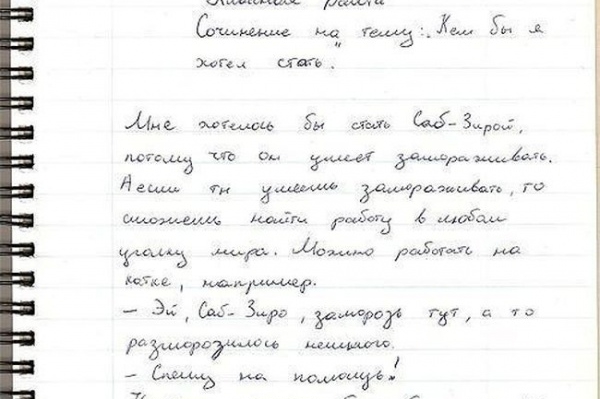 Классная работа
Сочинение на тему: „Кем бы я
хотел стать".
Мне хотелось бы стать Саб-Зирой,
потому что он умеет замораживать.
А если ты умеешь замораживать, то
сможешь найти работу в любом
уголку мира. Можно работать на
катке, например.
– Эй, Саб-Зиро, заморозь тут, а то
разморозилось немного.
– Спешу на помощь!